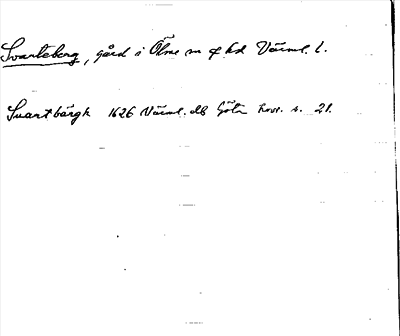 Svarteberg, gård i Ölme sn o hd Värml. l.
Svartbärgh 1626 Värml. db Göta hovr. s. 21.